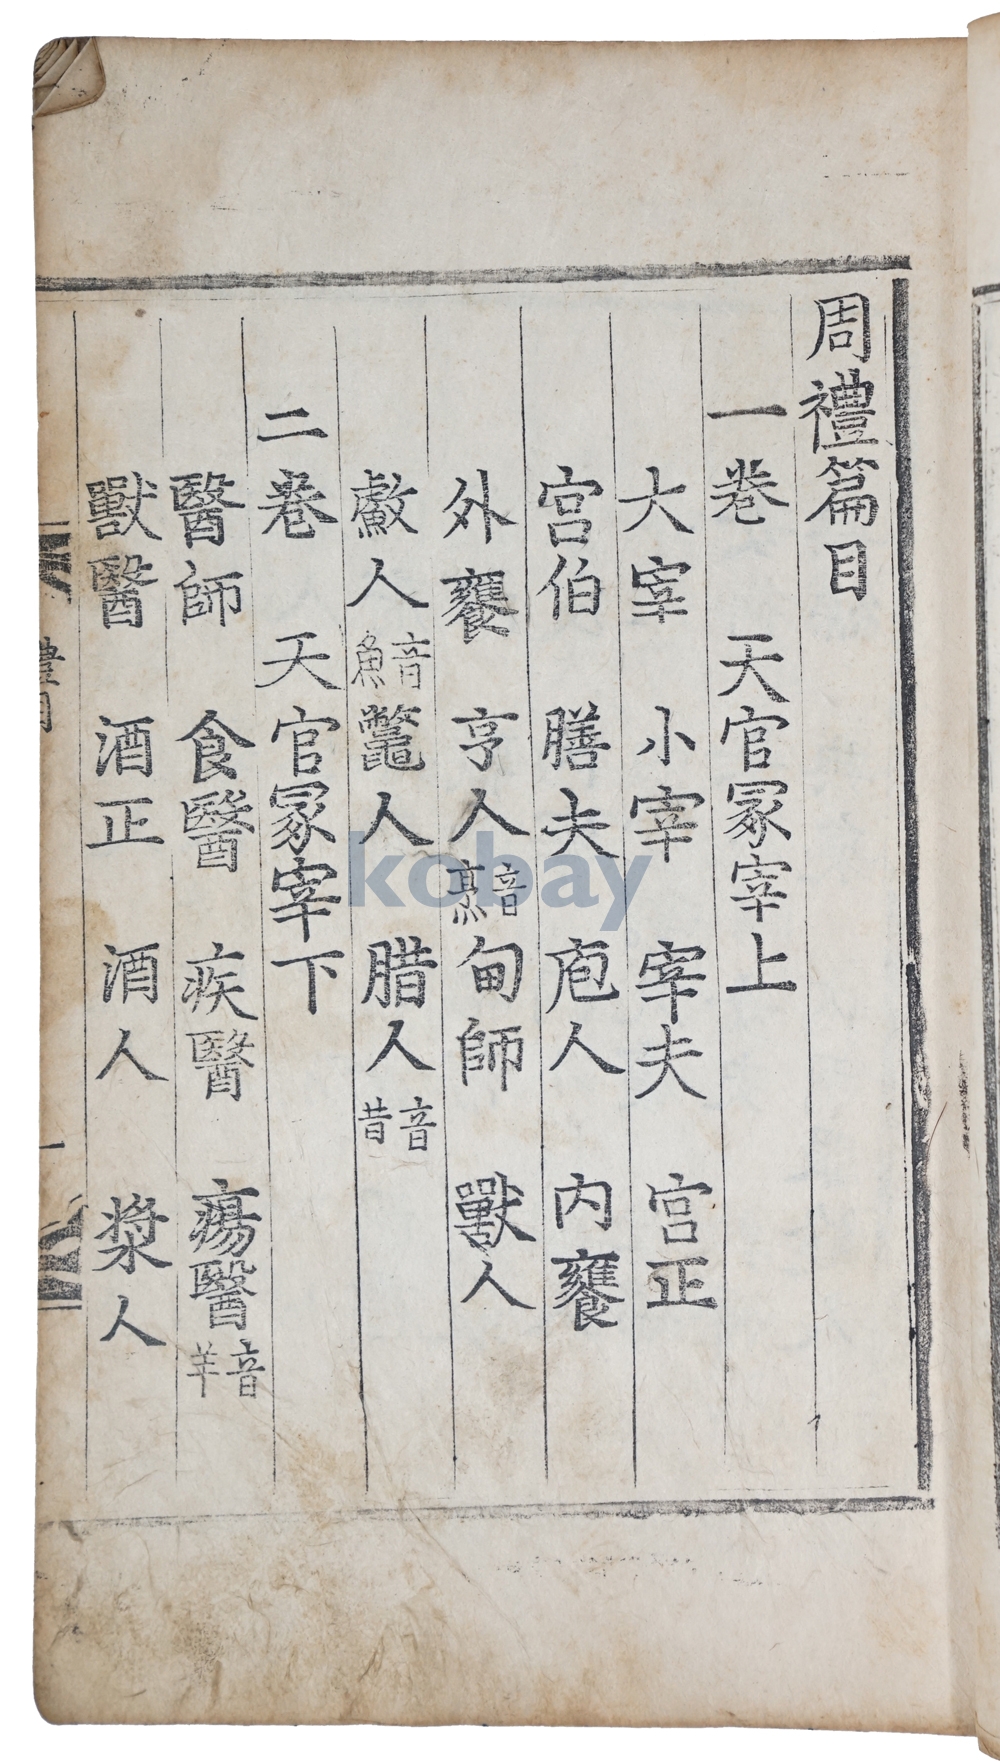 周禮篇目
一卷 天官冢宰上
大宰 小宰 宰夫 宫正
宫伯 膳夫 庖人 内饔
外饔 亨人 音烹 甸師 獸人
䱷人 音魚 鼈人 腊人 音昔
二卷 天官冢宰下
醫師 食醫 疾醫 瘍醫 音羊
獸醫 酒正 酒人 漿人
禮目
一
kobay